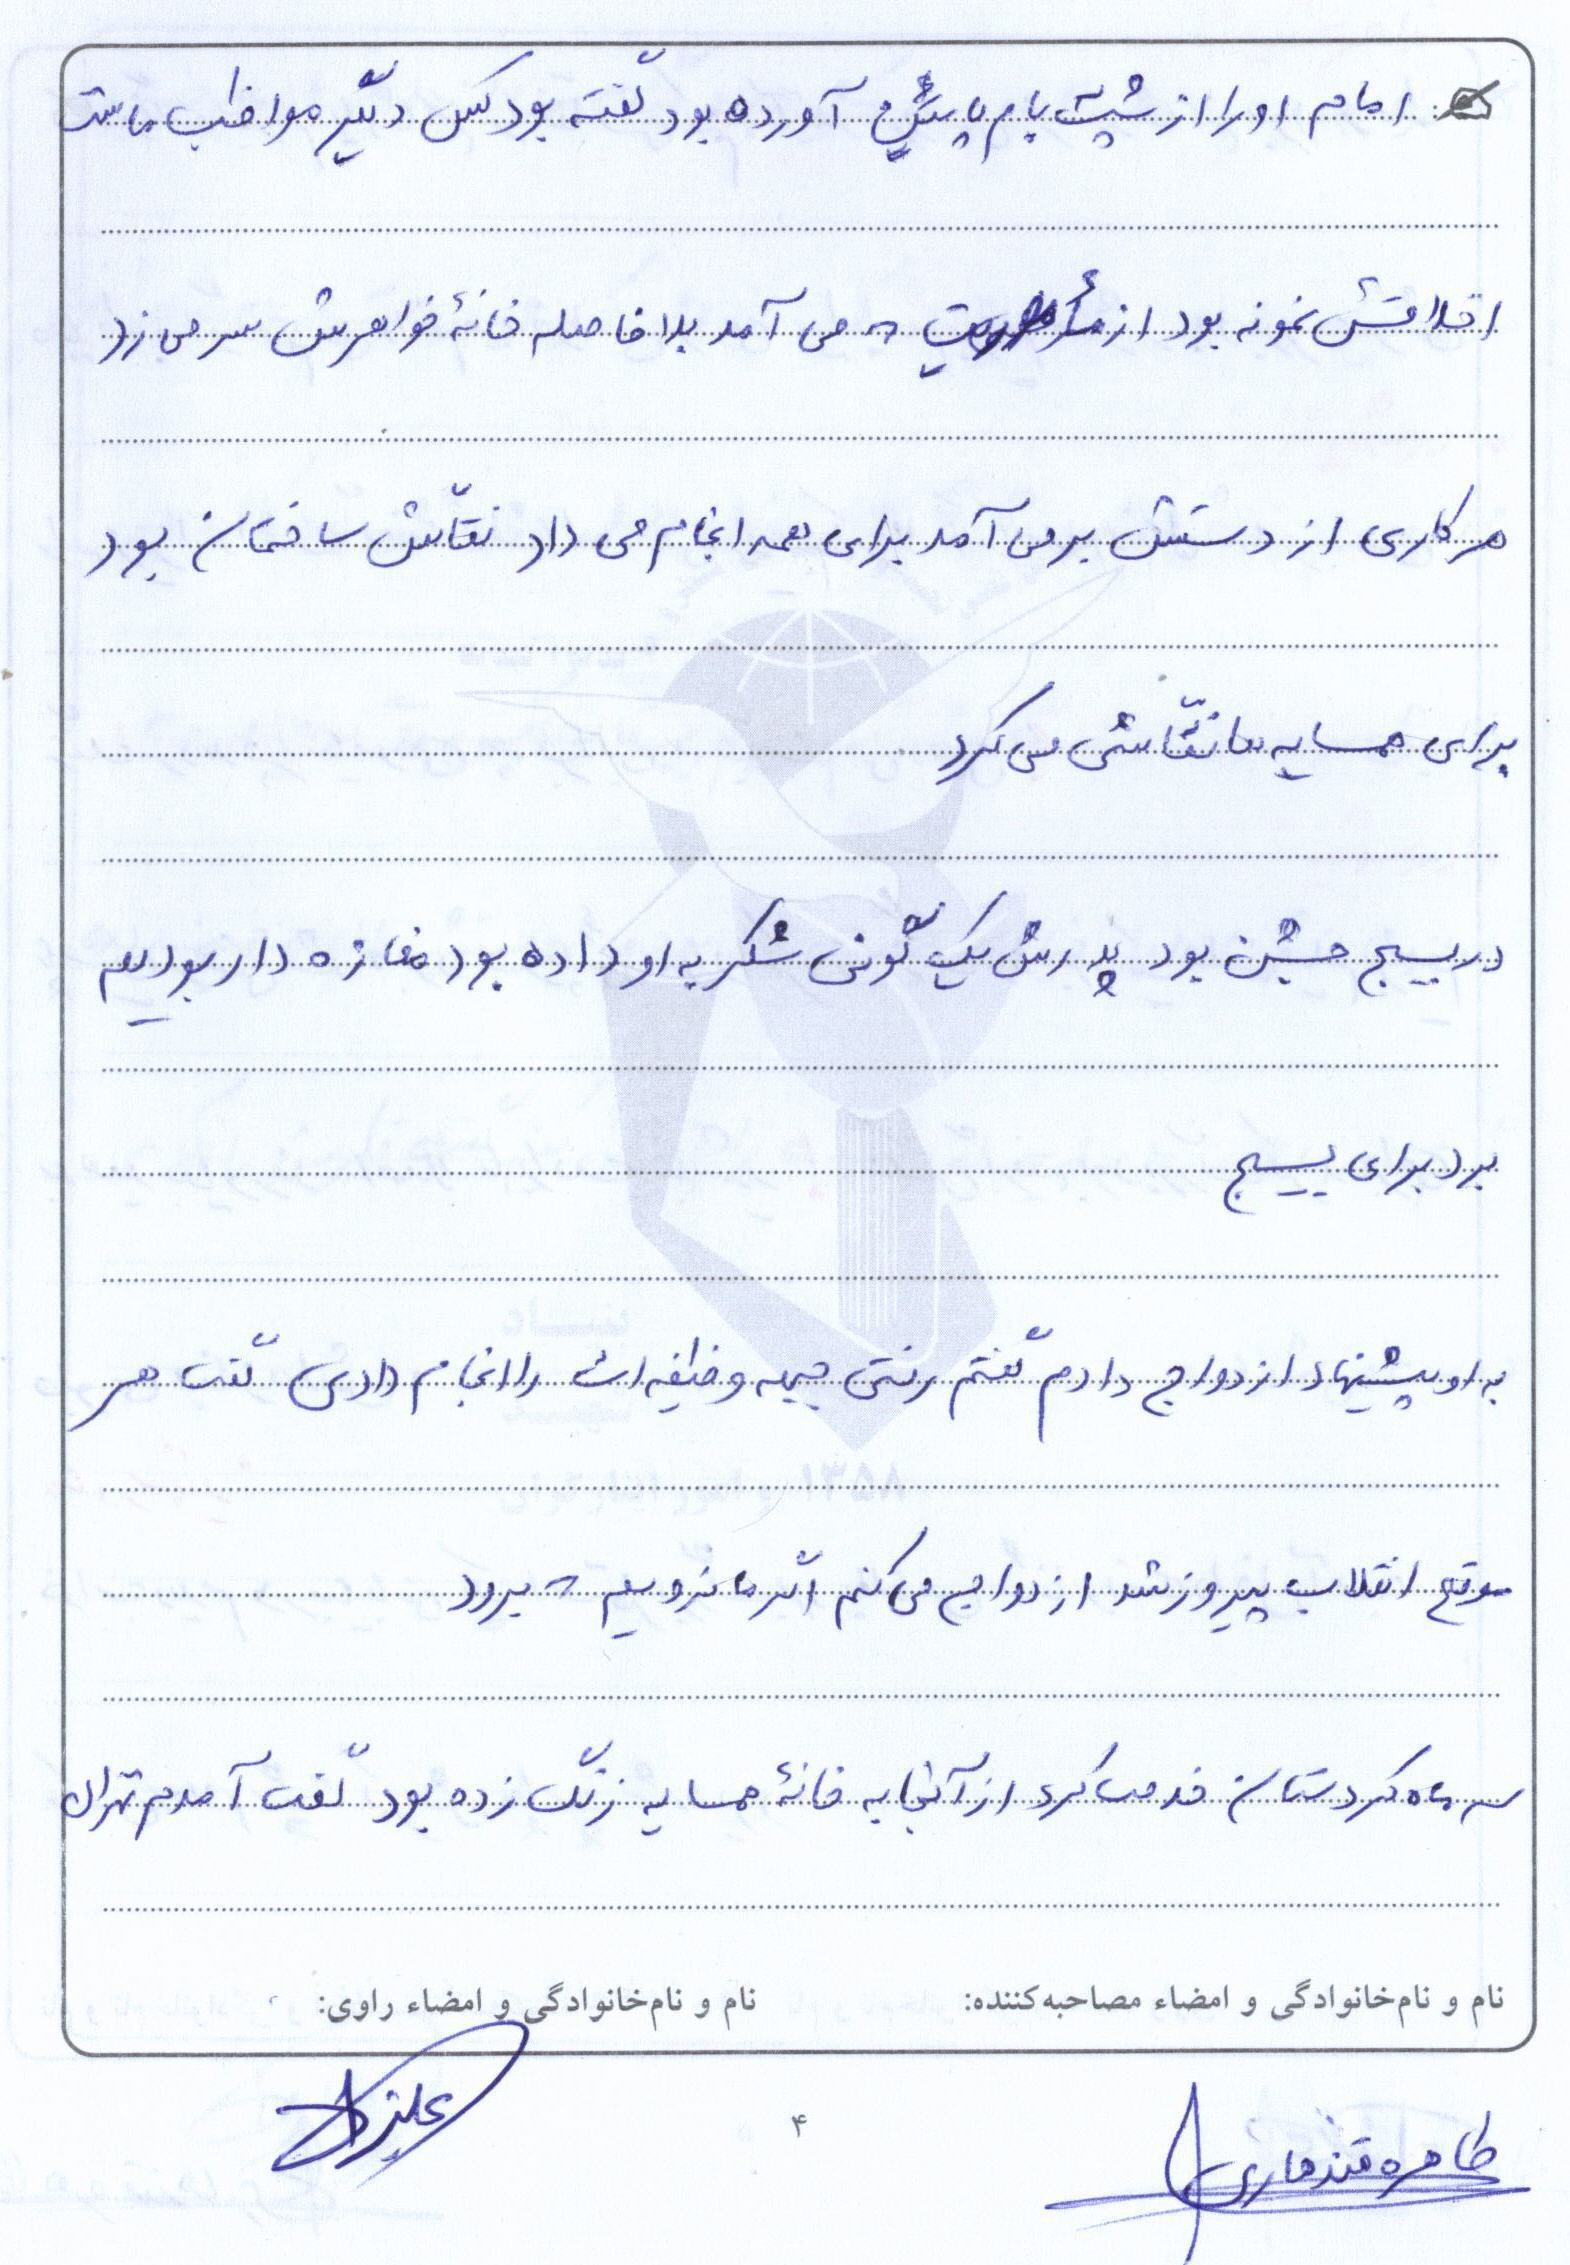 امام او را از پشت بام پایین آورده بود گفته بود کس دیگر مواظب ماست
اخلاقش نمونه بود از مأموریت که می آمد بلافاصله خانهٔ خواهرش سر می زد
هر کاری از دستش بر می آمد برای همه انجام می داد نقّاش ساختمان بود
برای همسایه ها نقّاشی می کرد
در بسیج جشن بود پدرش یک گونی شکر به او داده بود مغازه دار بودیم
برد برای بسیج
به او پیشنهاد ازدواج دادم گفتم رفتی جبهه وظیفه ات را انجام دادی گفت هر
موقع انقلاب پیروز شد ازدواج می کنم اگر ما نرویم که برود
سه ماه کردستان خدمت کرد از آنجا به خانهٔ همسایه زنگ زده بود گفت آمدم تهران
نام و نام‌خانوادگی و امضاء مصاحبه‌کننده: نام و نام‌خانوادگی و امضاء راوی:
طاهره قندهاری
۴
۱۳۵۸